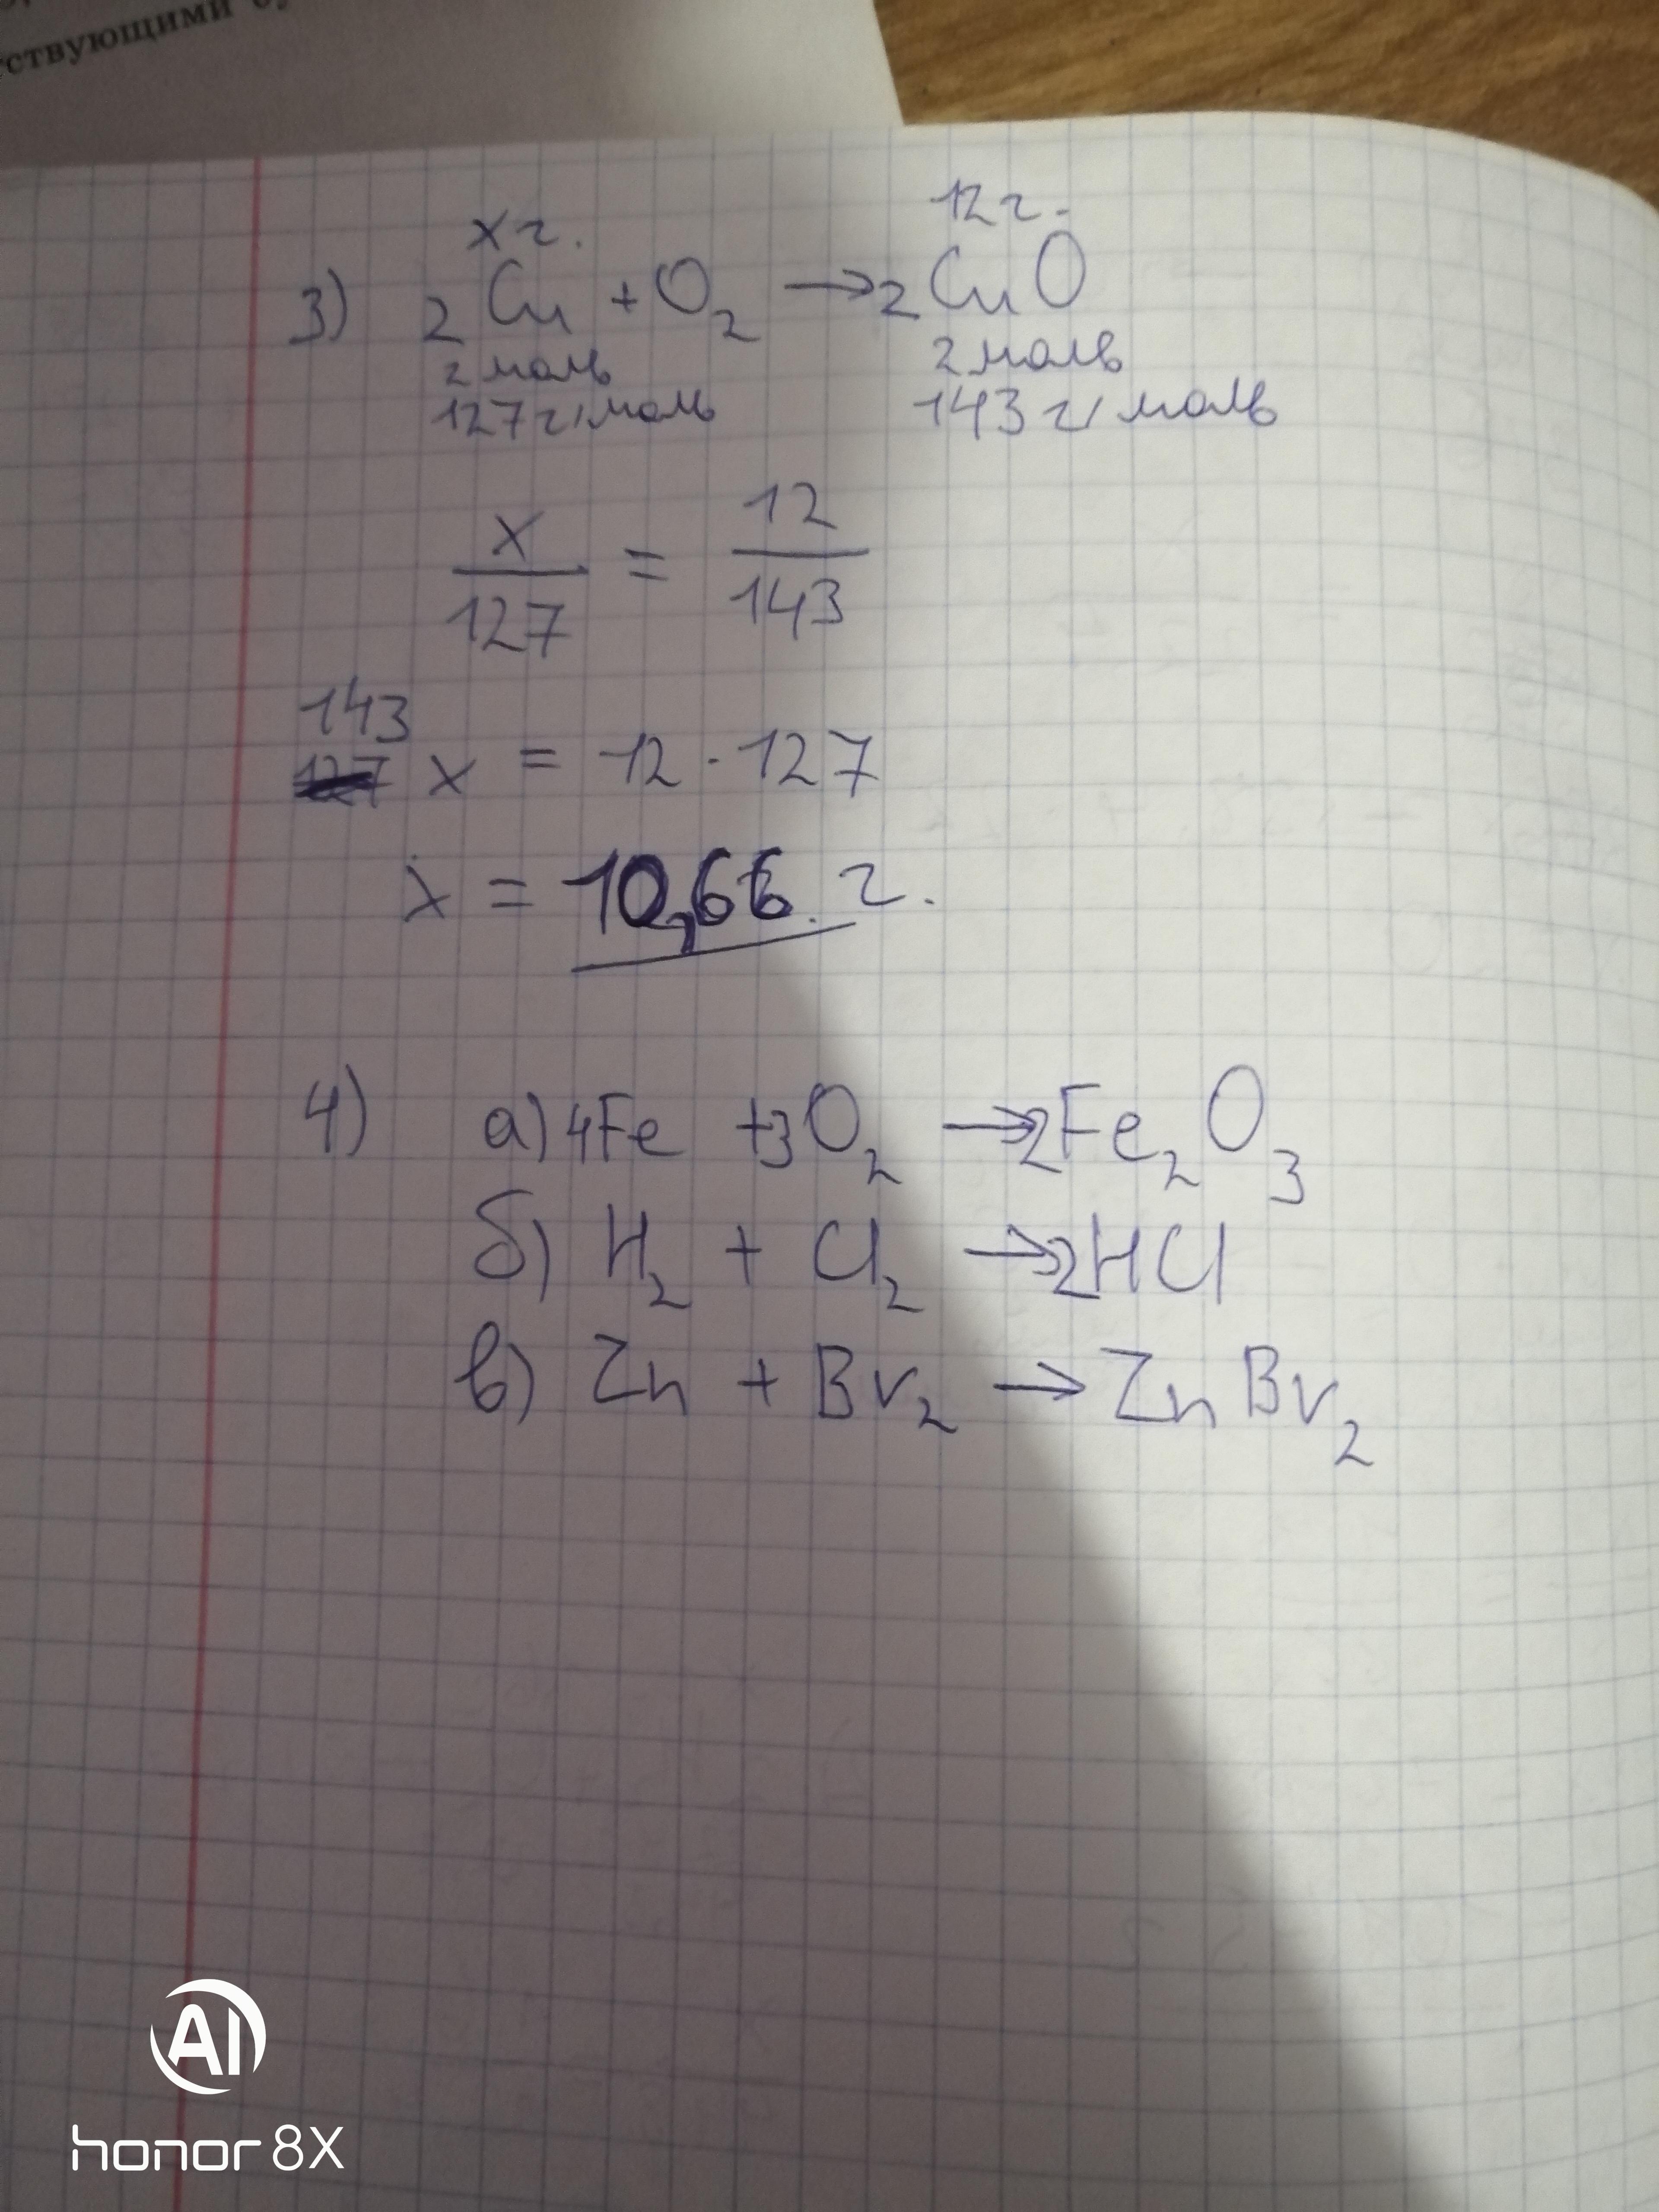 ствующими
x г. 12 г.
3) 2 Cu + O2 → 2 CuO
2 моль 2 моль
127 г/моль 143 г/моль
x/127 = 12/143
143
x = 12 · 127
x = 10,66. г.
4) а) 4Fe + 3O2 → 2Fe2O3
б) H2 + Cl2 → 2HCl
в) Zn + Br2 → ZnBr2
AI
honor 8X